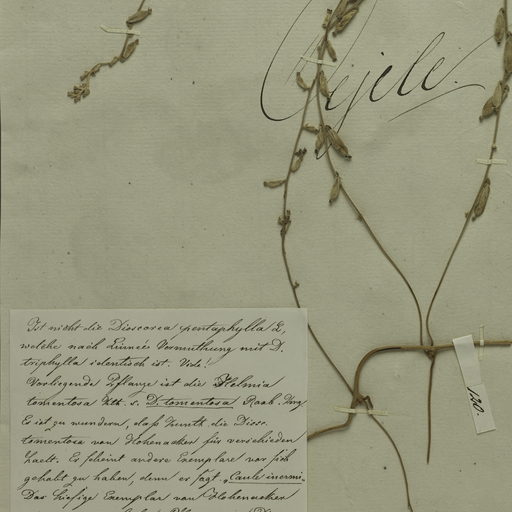 Cyele.
Ist nicht die Dioscorea pentaphylla L,
welche nach Linnés Vermuthung mit D.
triphylla identisch ist. Vide!
Vorliegende Pflanze ist die Helmia
tomentosa Kth. s. D. tomentosa Roxb.
Es ist zu wundern, daß Kunth die Diosc.
tomentosa von Hohenacker für verschieden
haelt. Er scheint andere Exemplare vor sich
gehabt zu haben, denn er sagt „Caule inermi."
Das hiesige Exemplar von Hohenacker
120.